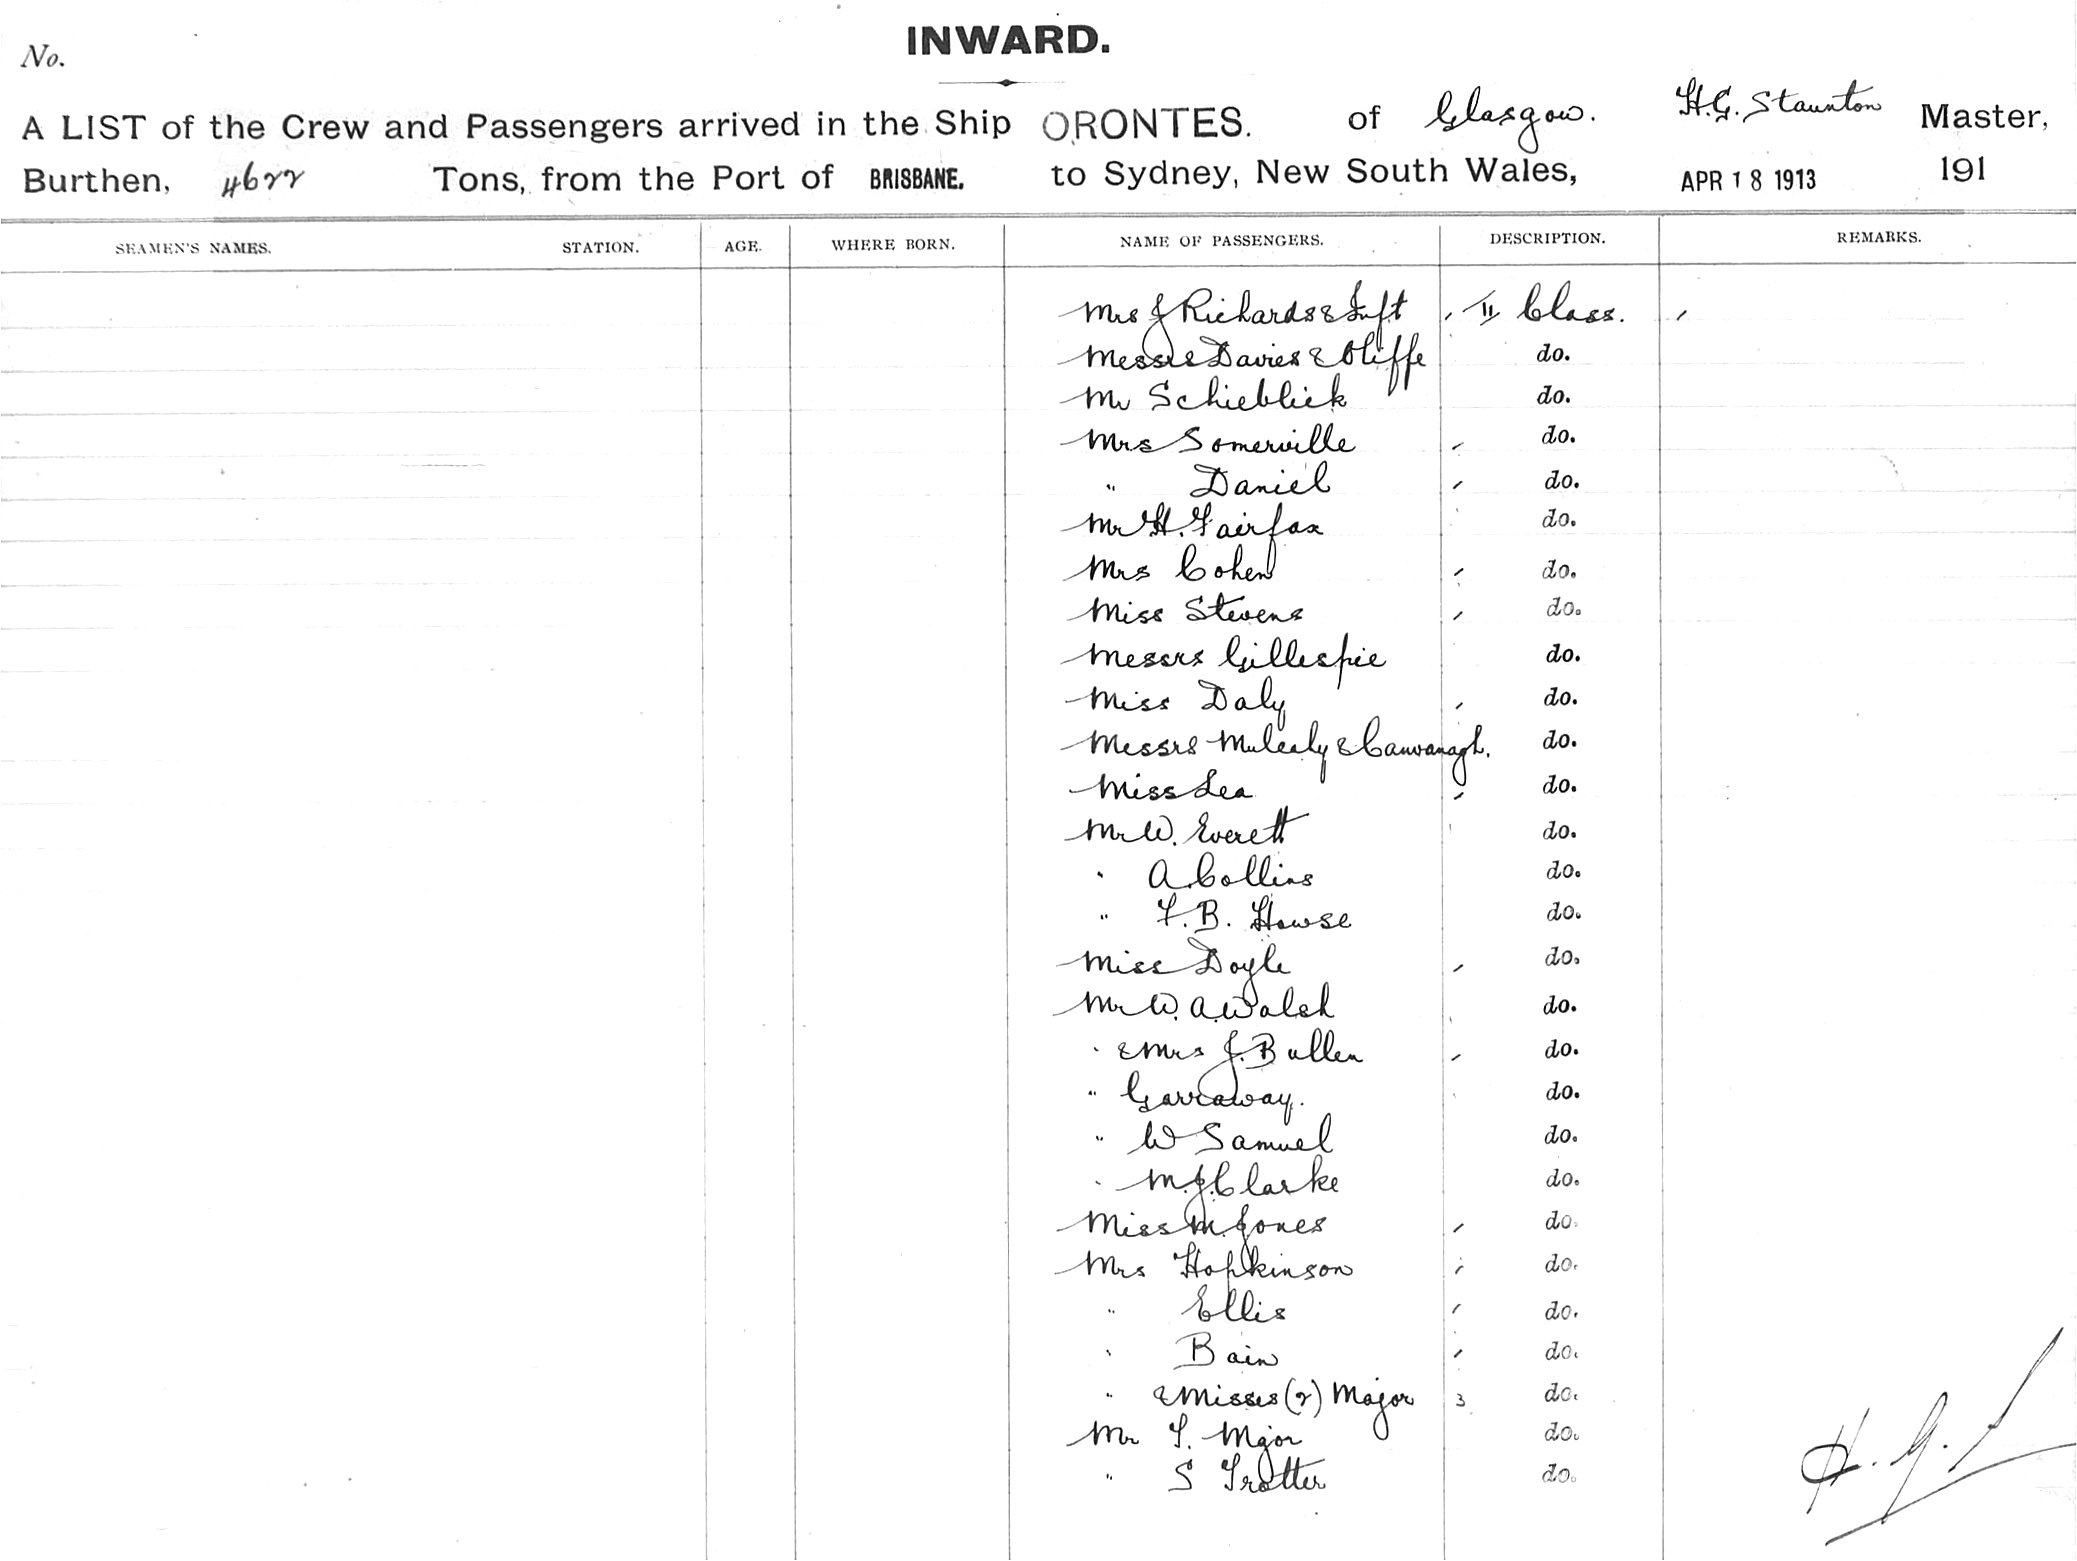 INWARD.
No.
A LIST of the Crew and Passengers arrived in the Ship ORONTES. of Glasgow. H.G. Staunton Master,
Burthen, 4622 Tons, from the Port of BRISBANE. to Sydney, New South Wales, APR 18 1913 191
SEAMEN'S NAMES. STATION. AGE. WHERE BORN. NAME OF PASSENGERS. DESCRIPTION. REMARKS.
Mrs J Richards & Inft II Class.
Messrs Davies & Oliffe do.
Mr Schieblick do.
Mrs Somerville do.
" Daniel do.
Mr H. Fairfax do.
Mrs Cohen do.
Miss Stevens do.
Messrs Gillespie do.
Miss Daly do.
Messrs Mulealy & Cauvanagh. do.
Miss Lea do.
Mr W. Everett do.
" A. Collins do.
" F. B. Howse do.
Miss Doyle do.
Mr W. A. Walsh do.
" & Mrs J. Bullen do.
" Garraway. do.
" W Samuel do.
" M. J. Clarke do.
Miss M. Jones do.
Mrs Hopkinson do.
" Ellis do.
" Bain do.
" & Misses (2) Major 3 do.
Mr F. Mjor do.
" S Trotter do.
H. G. S